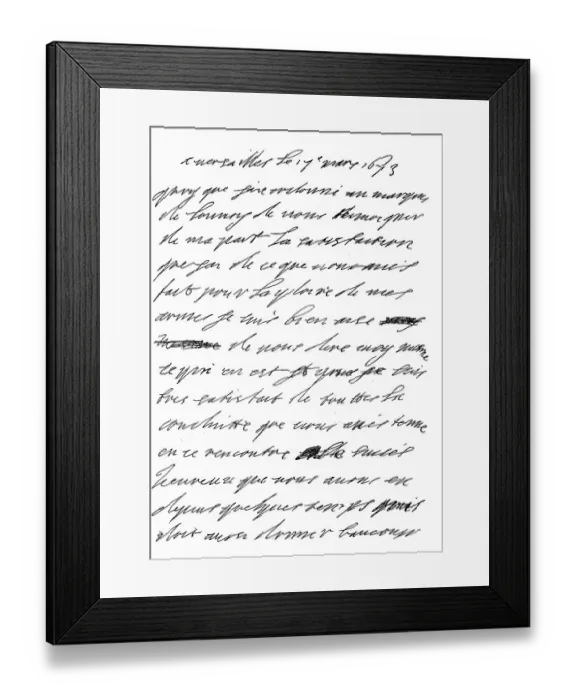 a versailles le 17e mars 1673
quoy que jaie ordonné au marquis
de louuoy de uous temoigner
de ma part la satisfaction
que jai de ce que uous aués
fait pour la gloire de mes
armes je suis bien aise
de uous dire moy mesme
ce qui en est je suis
tres satisfait de toutes la
conduitte que uous aués tenue
en ce rencontre succés
heureux que nous auons eu
depuis quelques temps
doit auoir donner beaucoup